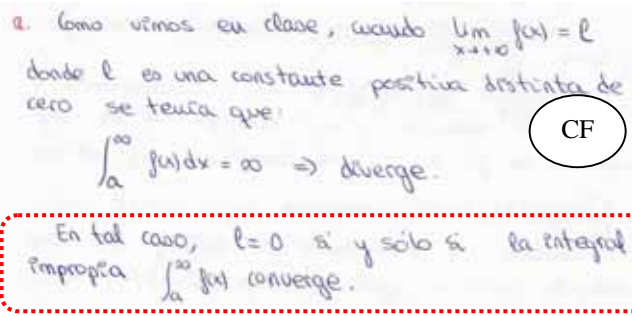 a. Como vimos en clase, cuando lim f(x) = l
x→+∞
donde l es una constante positiva distinta de
cero se tenía que:
CF
∫_a^∞ f(x)dx = ∞ ⇒ diverge.
En tal caso, l = 0 si y sólo si la integral
impropia ∫_a^∞ f(x) converge.